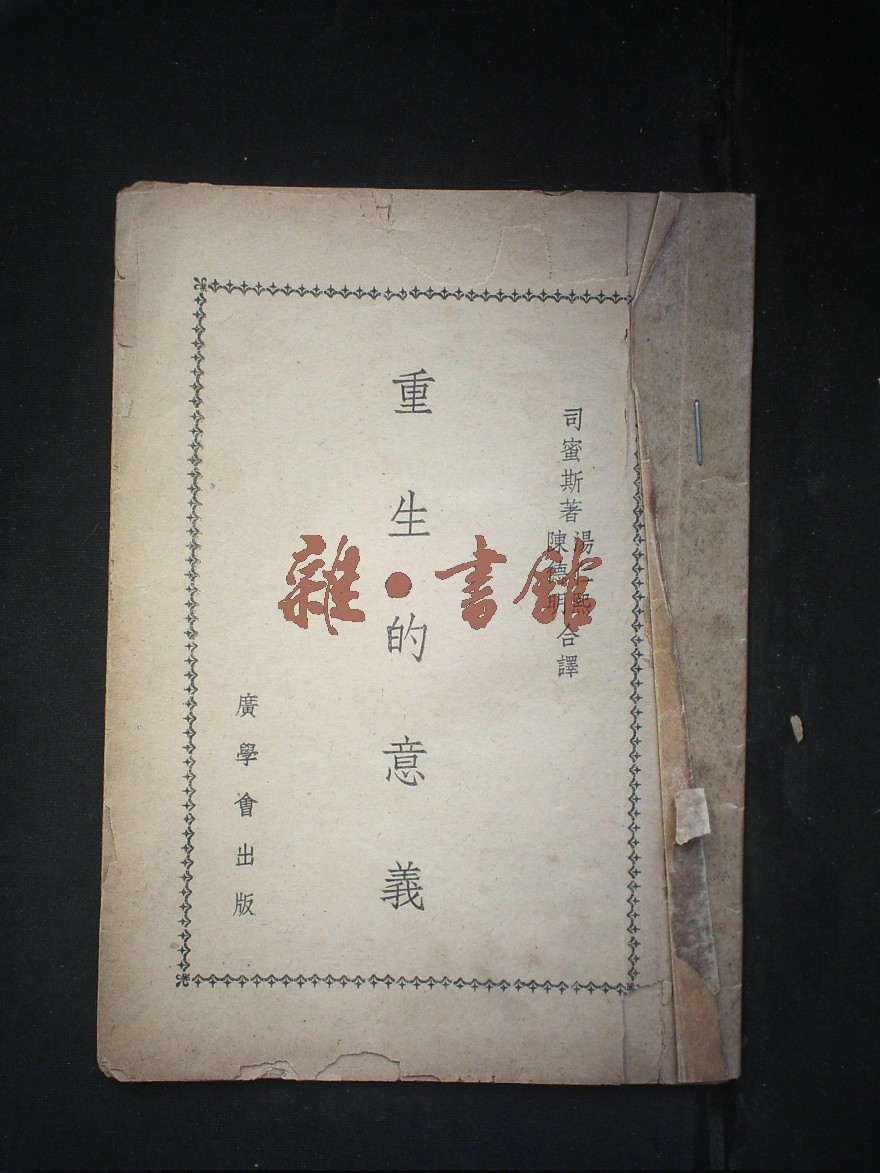 司蜜斯著 湯 熙 陳德明 合譯
重生的意義
廣學會出版
雜·書館